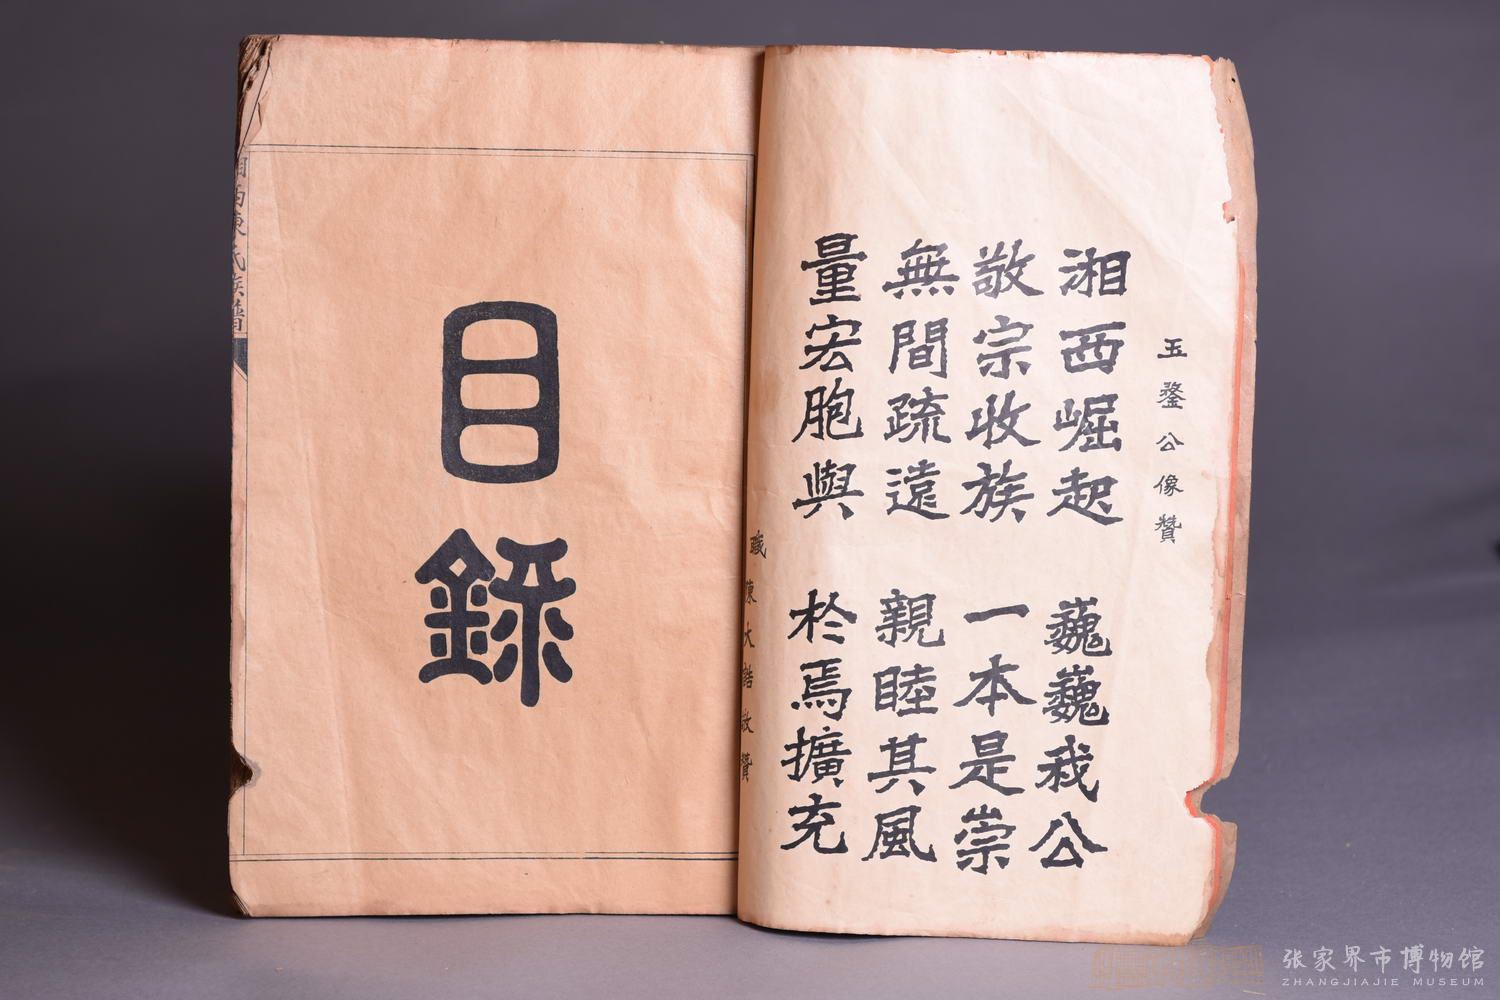 玉鍪公像贊
湘西崛起 巍巍我公
敬宗收族 一本是崇
無間疏遠 親睦其風
量宏胞與 於焉擴充
職陳大誥敬贊
目錄
湘西陳氏族譜
张家界市博物馆
ZHANGJIAJIE MUSEUM